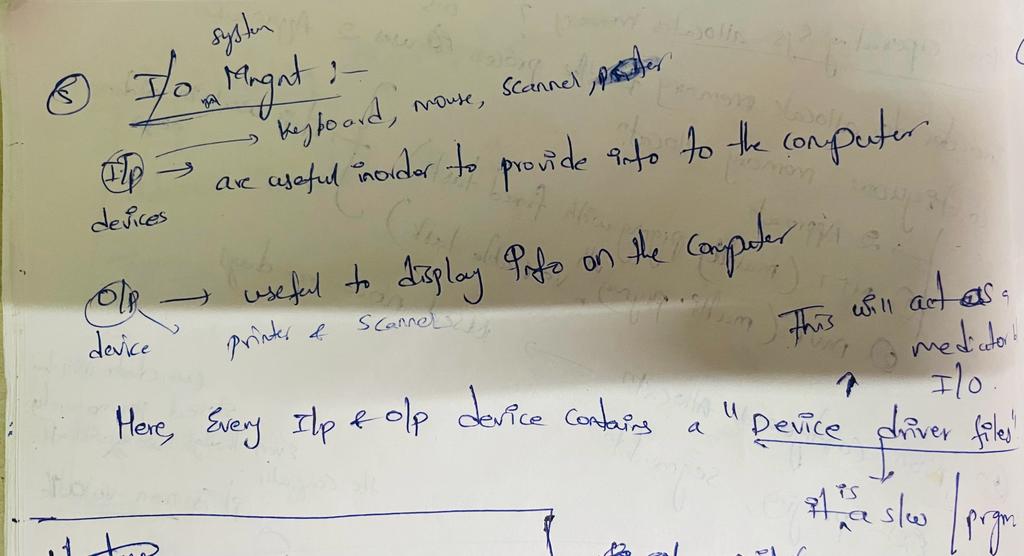 system
⑤ I/O Mngnt :-
keyboard, mouse, scanner,
I/p → are useful inorder to provide info to the computer
devices
O/p → useful to display Info on the computer
device printer & scanner
This will act as a
mediator
I/O.
Here, Every I/p & O/p device contains a "Device driver files"
it is a s/w / prgm